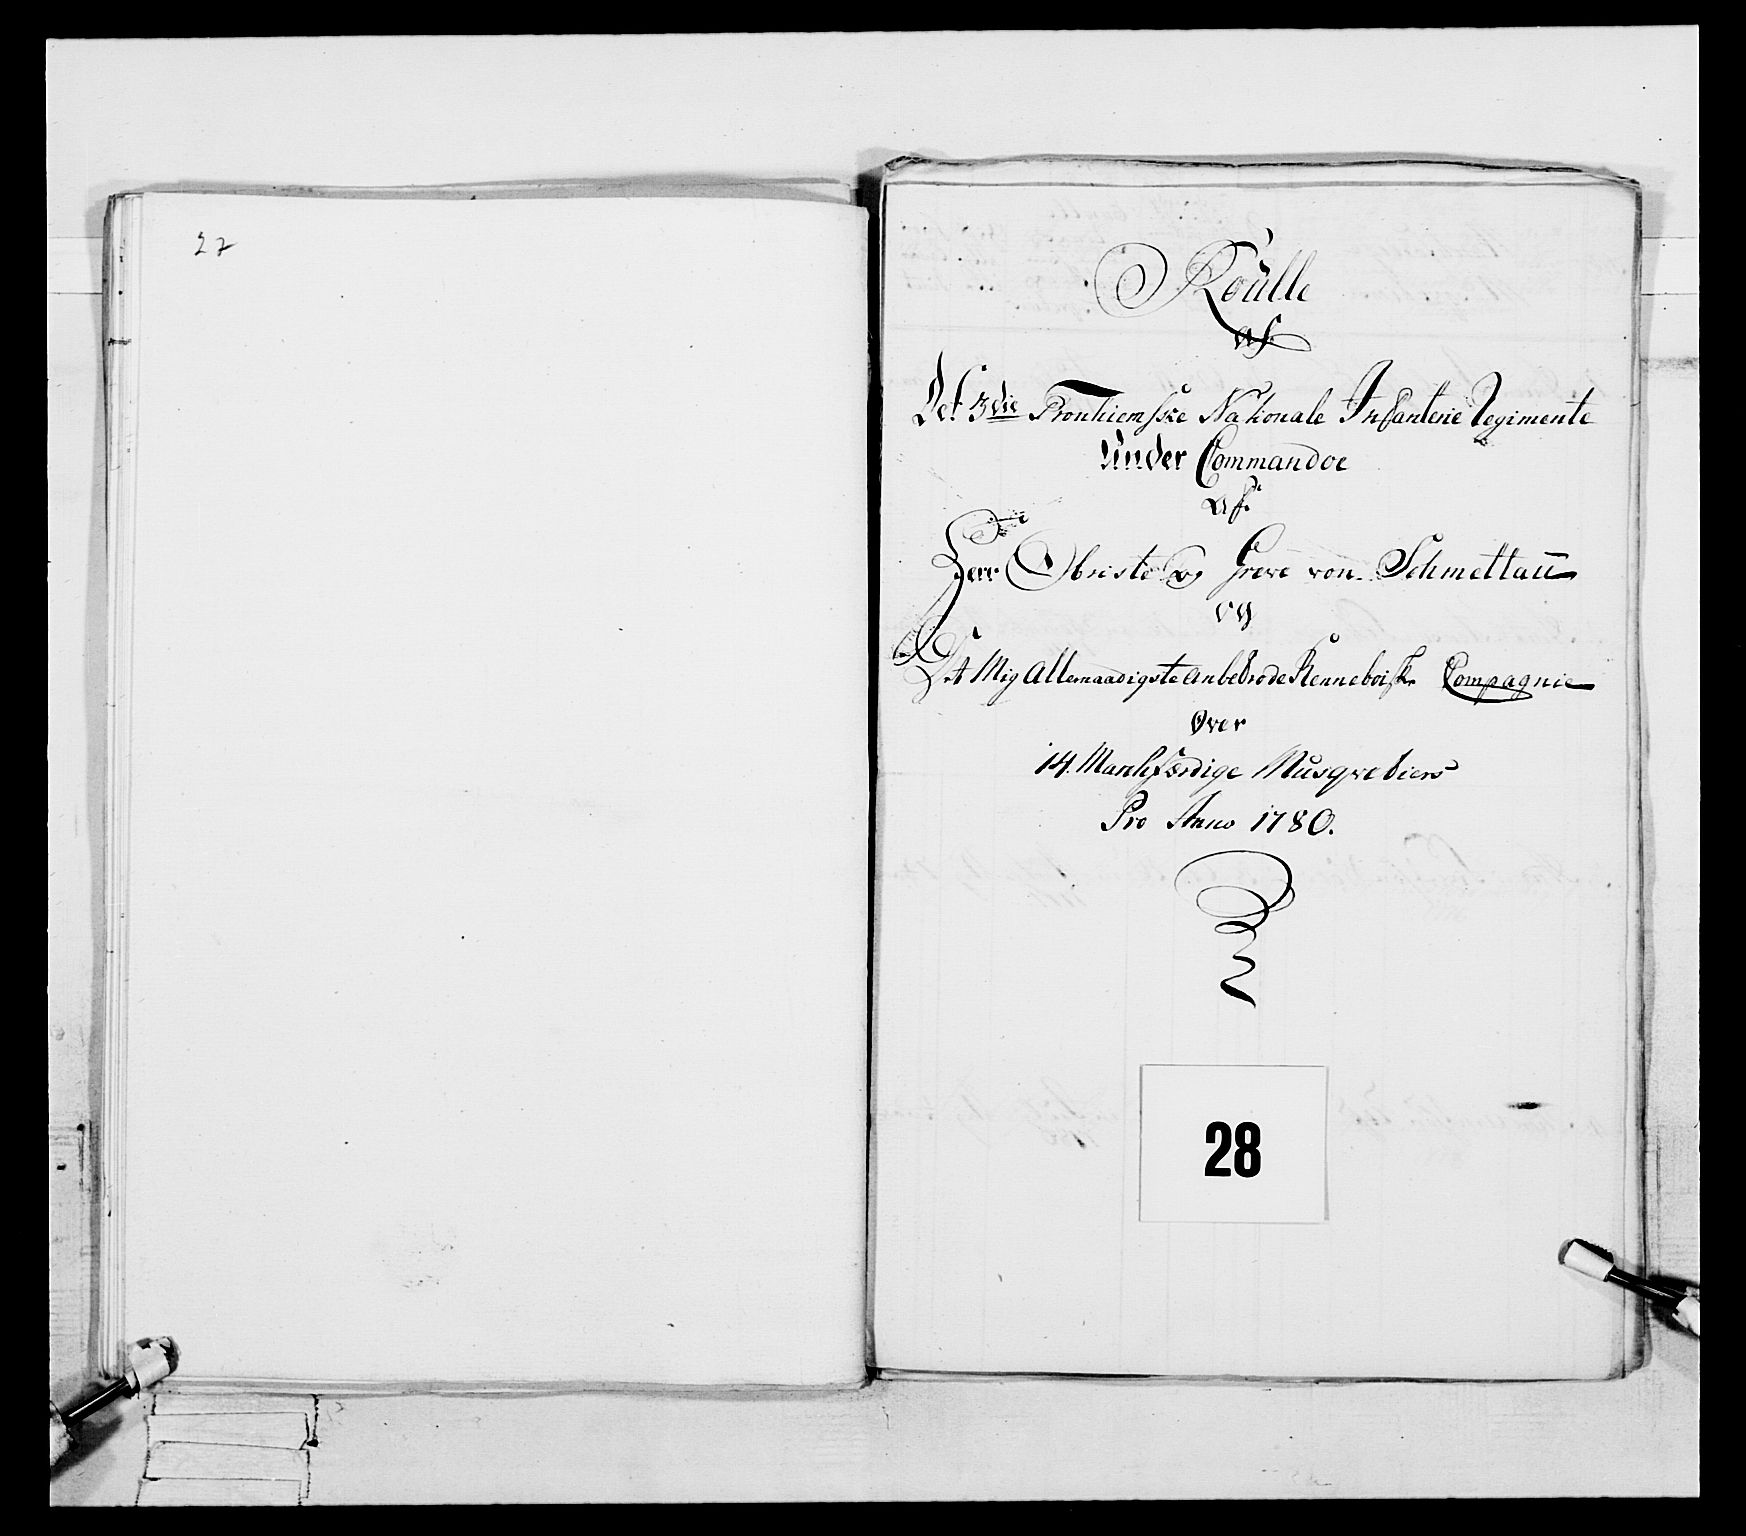 27
Roülle
af
Det 3die Tronhiemske Nationale Infanterie Regimente
Ünder Commandoe
af
Herr Obriste og Greve von Schmettaü
og
Det Mig Allernaadigste anbetrode Renneboiske Compagnie
over
14. Marchfærdige Müsqvetiers
Pro Anno 1780.
28